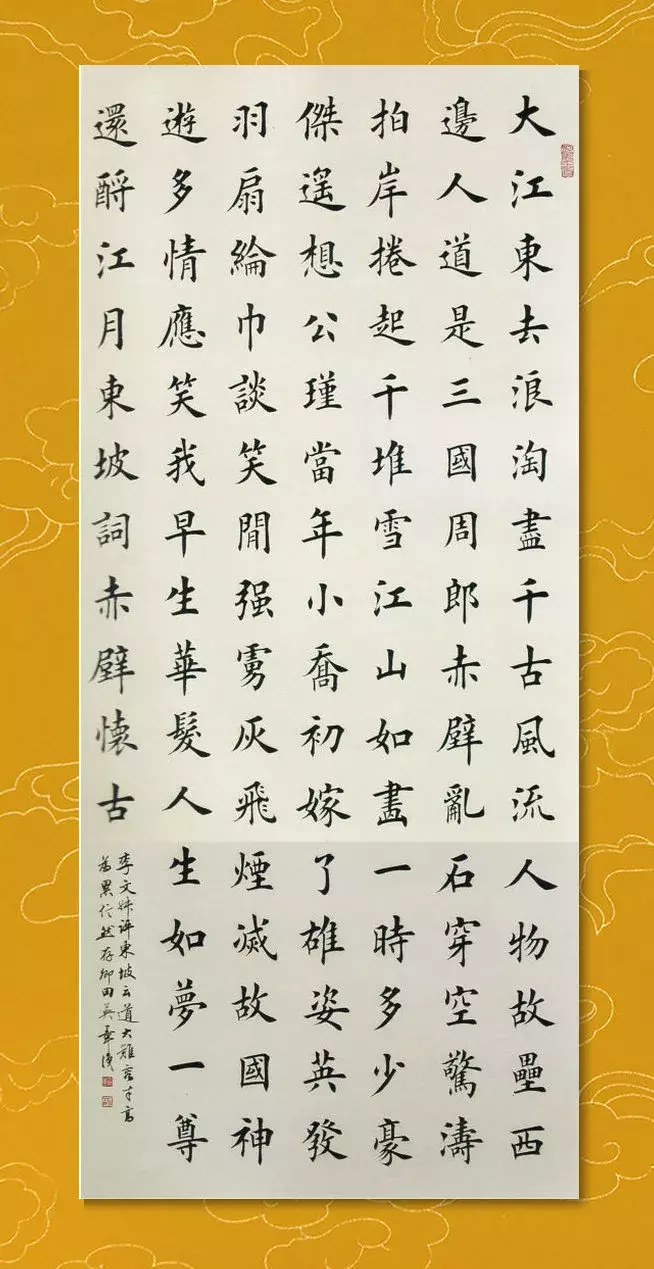 大江東去浪淘盡千古風流人物故壘西
邊人道是三國周郎赤壁亂石穿空驚濤
拍岸捲起千堆雪江山如畫一時多少豪
傑遥想公瑾當年小喬初嫁了雄姿英發
羽扇綸巾談笑間强虜灰飛煙滅故國神
遊多情應笑我早生華髮人生如夢一尊
還酹江月東坡詞赤壁懷古
東坡云道大難容才高
為累信然存卿田英章